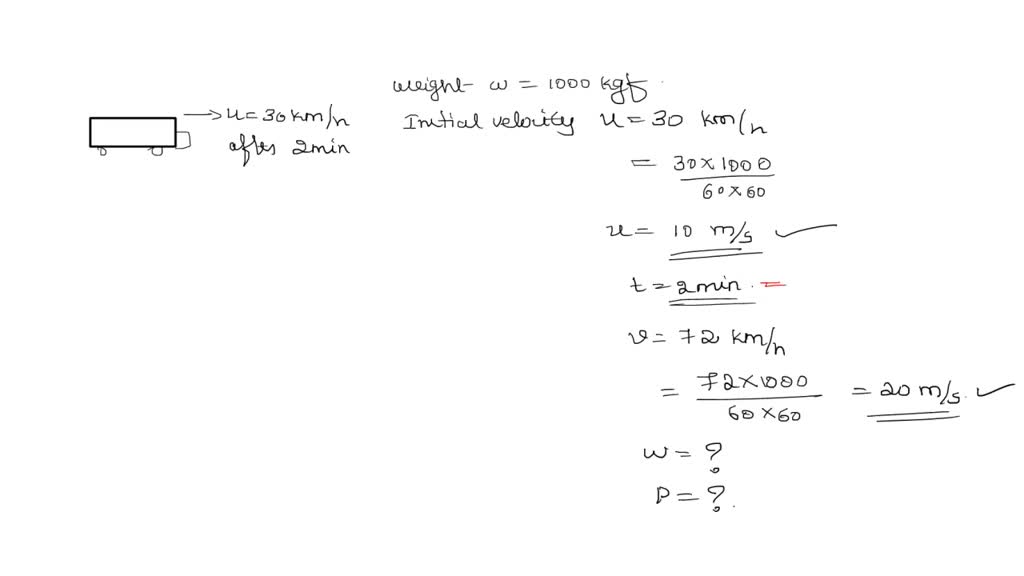 weight w = 1000 kgf
→ u = 30 km/h
after 2min
Initial velocity u = 30 km/h
= 30 × 1000 / 60 × 60
u = 10 m/s ✓
t = 2min. =
v = 72 km/h
= 72 × 1000 / 60 × 60 = 20 m/s. ✓
w = ?
P = ?.